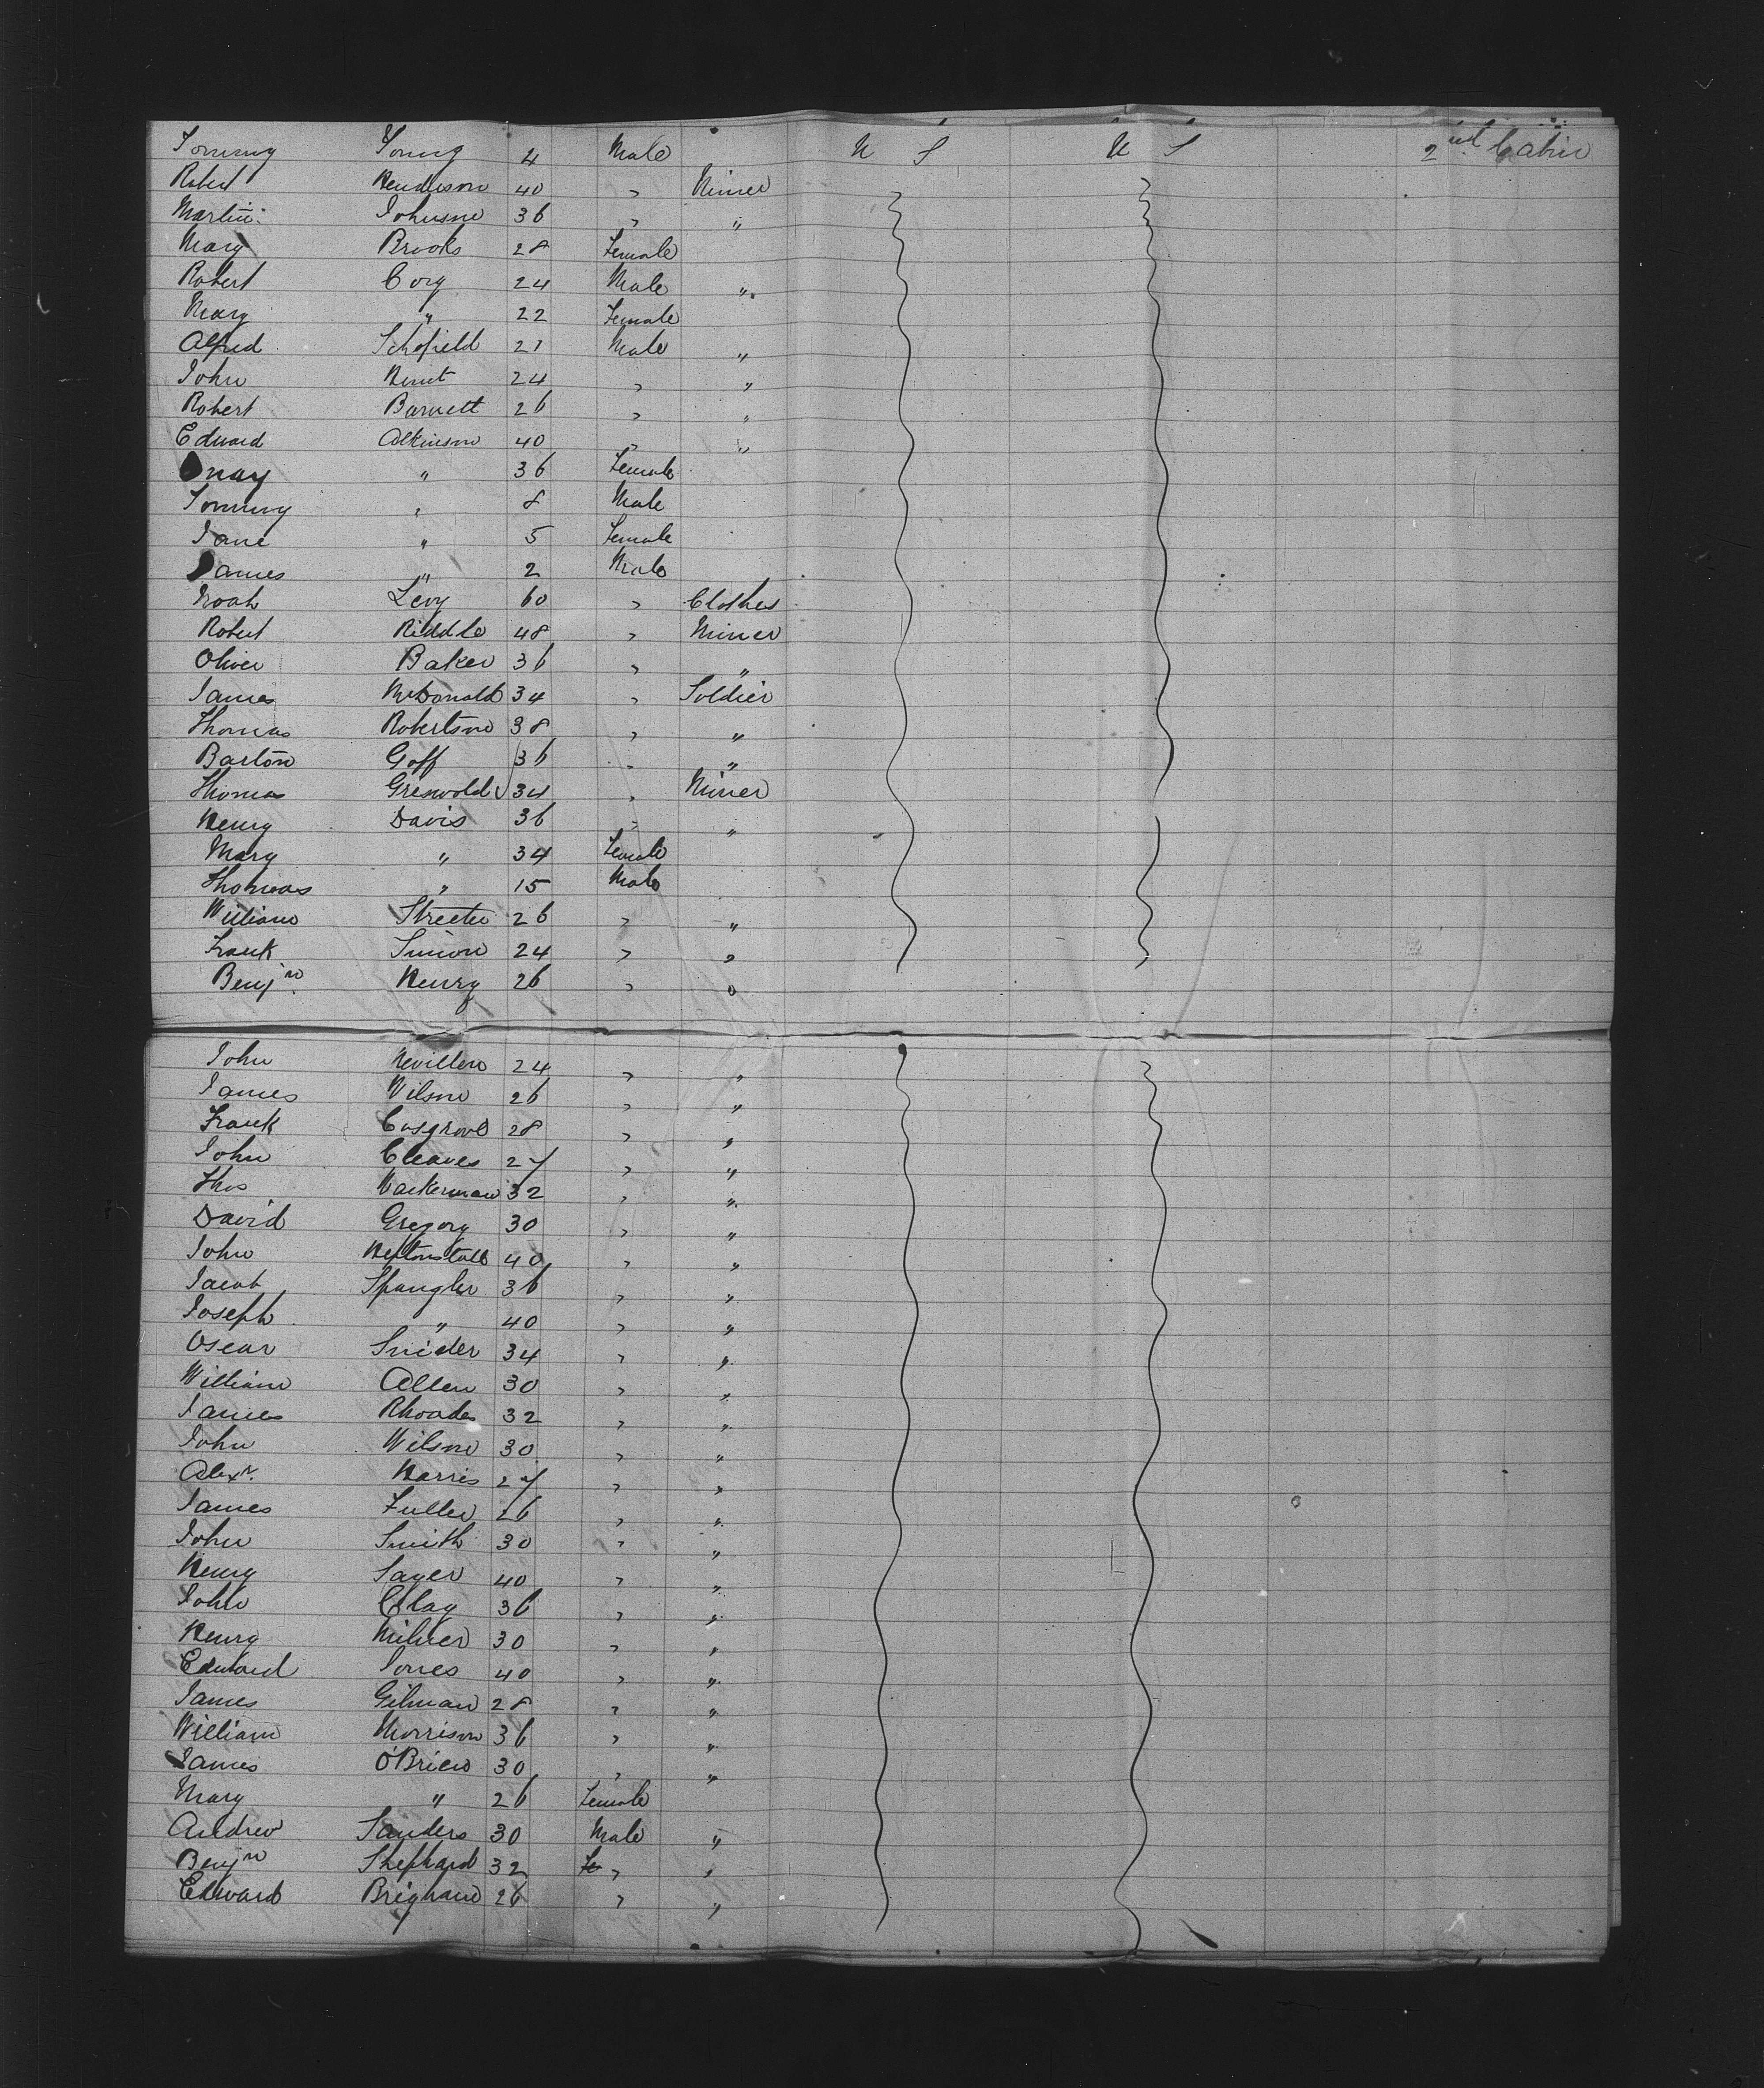 Tommy Young 4 Male U S U S 2nd Cabin
Robert Henderson 40 " Miner
Martin Johnson 36 " "
Mary Brooks 28 Female
Robert Cory 24 Male "
Mary " 22 Female
Alfred Schofield 21 Male "
John Hunt 24 " "
Robert Barnett 26 " "
Edward Atkinson 40 " "
Mary " 36 Female
Tommy " 8 Male
Jane " 5 Female
James " 2 Male
Noah Levy 60 " Clothes
Robert Riddle 48 " Miner
Oliver Baker 36 " "
James McDonald 34 " Soldier
Thomas Robertson 38 " "
Barton Goff 36 " "
Thomas Greswold 34 " Miner
Henry Davis 36 " "
Mary " 34 Female
Thomas " 15 Male
William Streeter 26 " "
Frank Simon 24 " "
Benjn Henry 26 " "
John 24 " "
James Wilson 26 " "
Frank Cosgrove 28 " "
John Cleaves 27 " "
Thos Wackerman 32 " "
David Gregory 30 " "
John Heptonstall 40 " "
Jacob Spangler 36 " "
Joseph " 40 " "
Oscar Snider 34 " "
William Allen 30 " "
James Rhoades 32 " "
John Wilson 30 " "
Alexr. Harris 27 " "
James Fuller 26 " "
John Smith 30 " "
Henry Sayer 40 " "
John Clay 36 " "
Henry Milner 30 " "
Edward Jones 40 " "
James Gilman 28 " "
William Morrison 36 " "
James O'Brien 30 " "
Mary " 26 Female
Andrew Sanders 30 Male "
Benjn Shephard 32 " "
Edward Brigham 26 " "